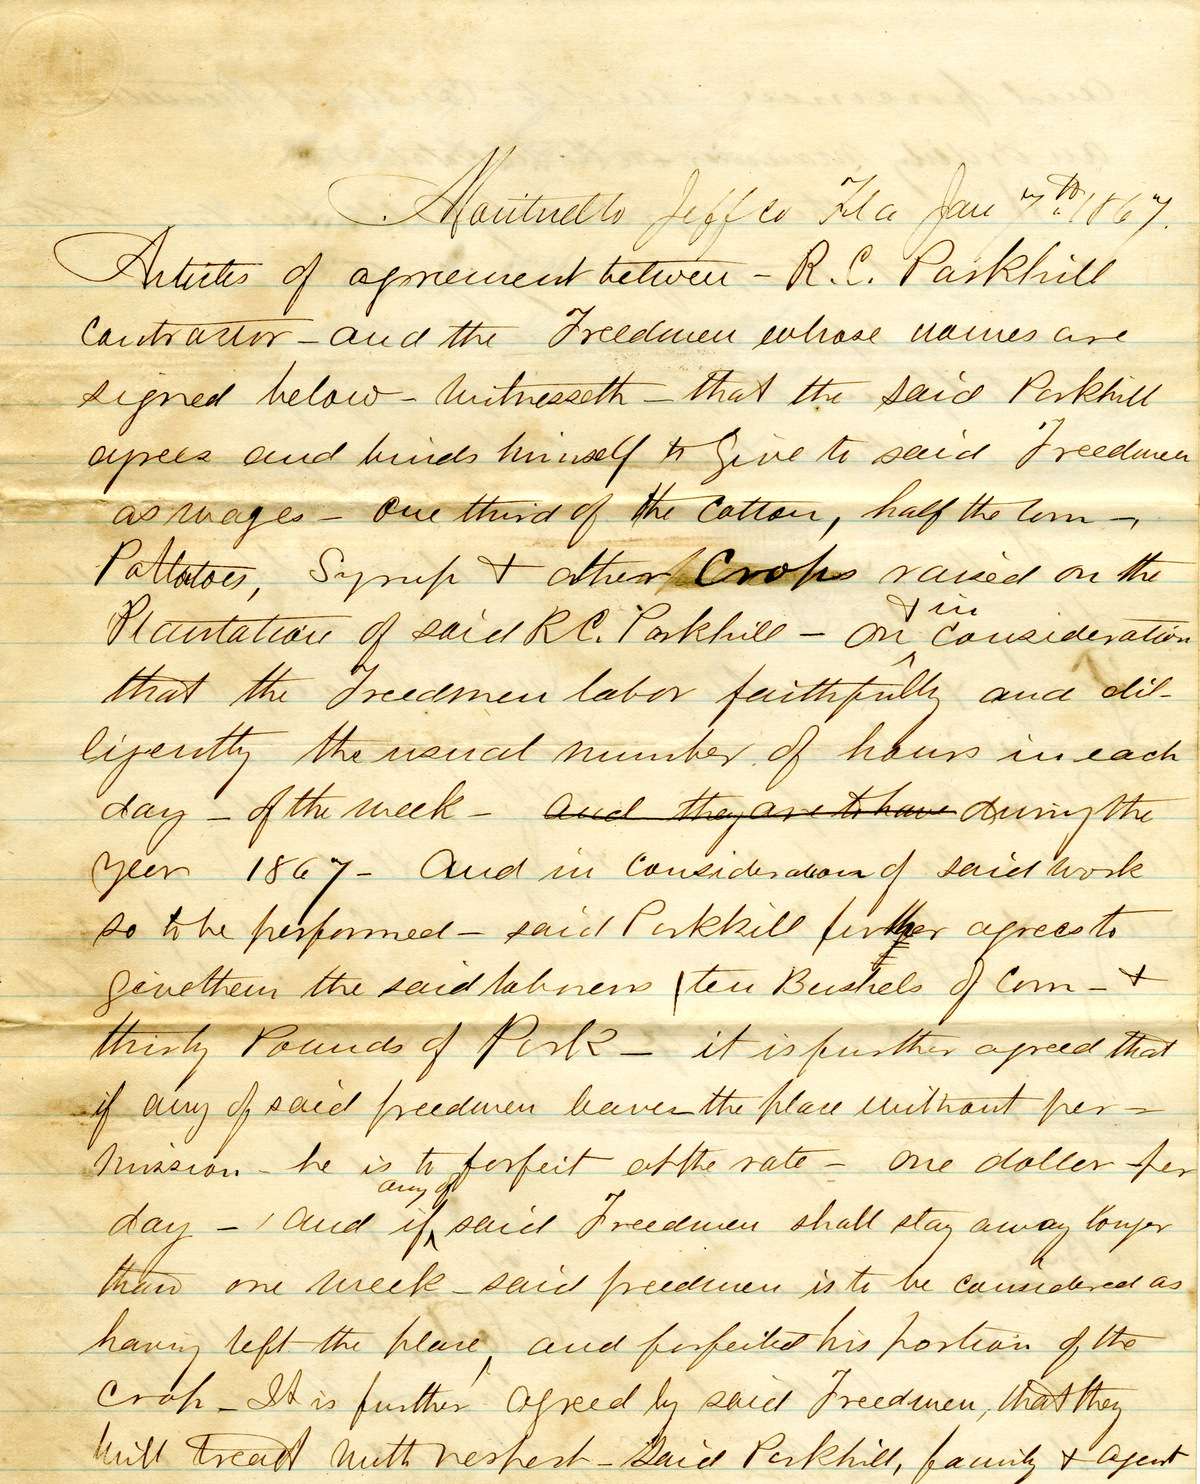 Monticello Jeff co Fla Jan 7th 1867.
Articles of agreement between - R.C. Parkhill
Contractor - and the Freedmen whose names are
signed below - Witnesseth - that the said Parkhill
agrees and binds himself to give to said Freedmen
as wages - one third of the Cotton, half the Corn -,
Pottatoes, Syrup & other Crops raised on the
Plantation of said R C. Parkhill - On & in consideration
that the Freedmen labor faithfully and dil-
ligently the usual number of hours in each
day - of the week - and they are to have during the
year 1867 - And in consideration of said work
so to be performed - said Parkhill further agrees to
give them the said laborers ten Bushels of Corn - &
thirty Pounds of Pork - it is further agreed that
if any of said freedmen leaves the place without per-
mission - he is to forfeit at the rate - one dollar per
day - And if any of said Freedmen shall stay away longer
than one week - said freedmen is to be considered as
having left the place, and forfeited his portion of the
Crop - It is further agreed by said Freedmen, that they
will treat with respect - said Parkhill, family & agent